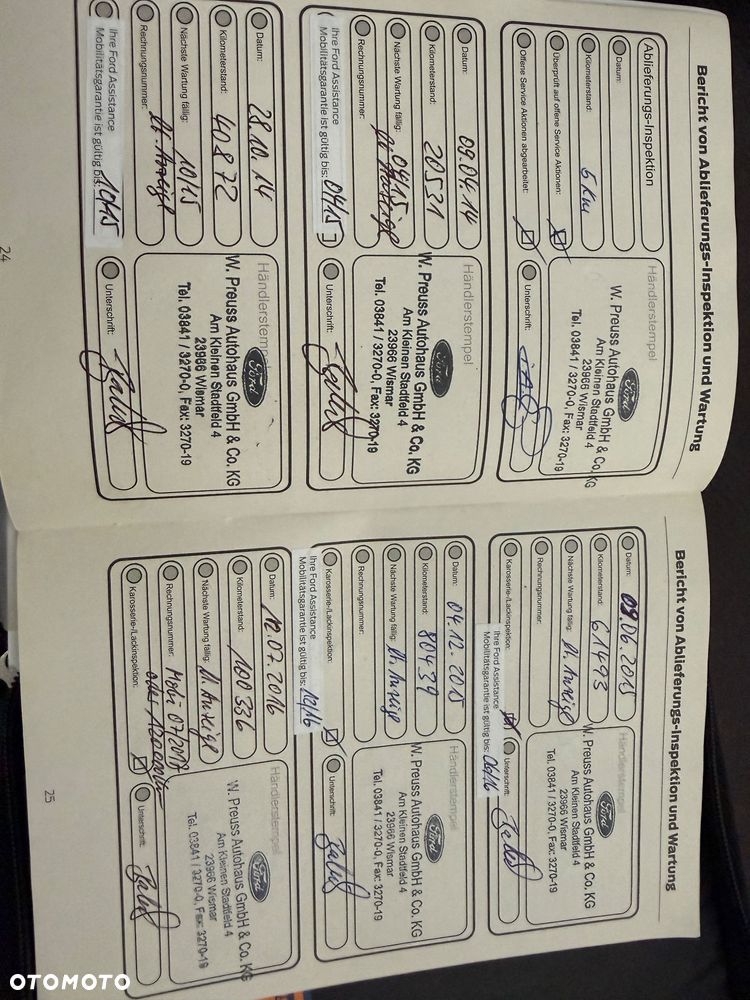 Bericht von Ablieferungs-Inspektion und Wartung
Ablieferungs-Inspektion
Datum:
Kilometerstand: 6 km
Überprüft auf offene Service Aktionen:
Offene Service Aktionen abgearbeitet:
Händlerstempel
Ford
W. Preuss Autohaus GmbH & Co. KG
Am Kleinen Stadtfeld 4
23966 Wismar
Tel. 03841 / 3270-0, Fax: 3270-19
Unterschrift:
Datum: 09.04.14
Kilometerstand: 20531
Nächste Wartung fällig: 04/15
Rechnungsnummer: Anzeige
Ihre Ford Assistance
Mobilitätsgarantie ist gültig bis: 04/15
Händlerstempel
Ford
W. Preuss Autohaus GmbH & Co. KG
Am Kleinen Stadtfeld 4
23966 Wismar
Tel. 03841 / 3270-0, Fax: 3270-19
Unterschrift:
Datum: 28.10.14
Kilometerstand: 40872
Nächste Wartung fällig: 10/15
Rechnungsnummer: lt. Anzeige
Ihre Ford Assistance
Mobilitätsgarantie ist gültig bis: 10/15
Händlerstempel
Ford
W. Preuss Autohaus GmbH & Co. KG
Am Kleinen Stadtfeld 4
23966 Wismar
Tel. 03841 / 3270-0, Fax: 3270-19
Unterschrift:
24
Bericht von Ablieferungs-Inspektion und Wartung
Datum: 09.06.2015
Kilometerstand: 61493
Nächste Wartung fällig: lt. Anzeige
Rechnungsnummer:
Karosserie-/Lackinspektion:
Ihre Ford Assistance
Mobilitätsgarantie ist gültig bis: 06/16
Händlerstempel
Ford
W. Preuss Autohaus GmbH & Co. KG
Am Kleinen Stadtfeld 4
23966 Wismar
Tel. 03841 / 3270-0, Fax: 3270-19
Unterschrift:
Datum: 04.12.2015
Kilometerstand: 80439
Nächste Wartung fällig: lt. Anzeige
Rechnungsnummer:
Karosserie-/Lackinspektion:
Ihre Ford Assistance
Mobilitätsgarantie ist gültig bis: 12/16
Händlerstempel
Ford
W. Preuss Autohaus GmbH & Co. KG
Am Kleinen Stadtfeld 4
23966 Wismar
Tel. 03841 / 3270-0, Fax: 3270-19
Unterschrift:
Datum: 12.07.2016
Kilometerstand: 100336
Nächste Wartung fällig: lt. Anzeige
Rechnungsnummer: Mobi 07/2017
oder
Karosserie-/Lackinspektion:
Händlerstempel
Ford
W. Preuss Autohaus GmbH & Co. KG
Am Kleinen Stadtfeld 4
23966 Wismar
Tel. 03841 / 3270-0, Fax: 3270-19
Unterschrift:
25
OTOMOTO